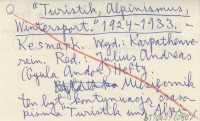 "Turistik, Alpinismus,
Wintersport." 1924-1933, -
Kesmark. Wyd: Karpathenve-
rein. Red.: Julius Andreas
(Gyula Andor) Hefty.
Miesięcznik
ten był kontynuacją czaso-
pisma Turistik und